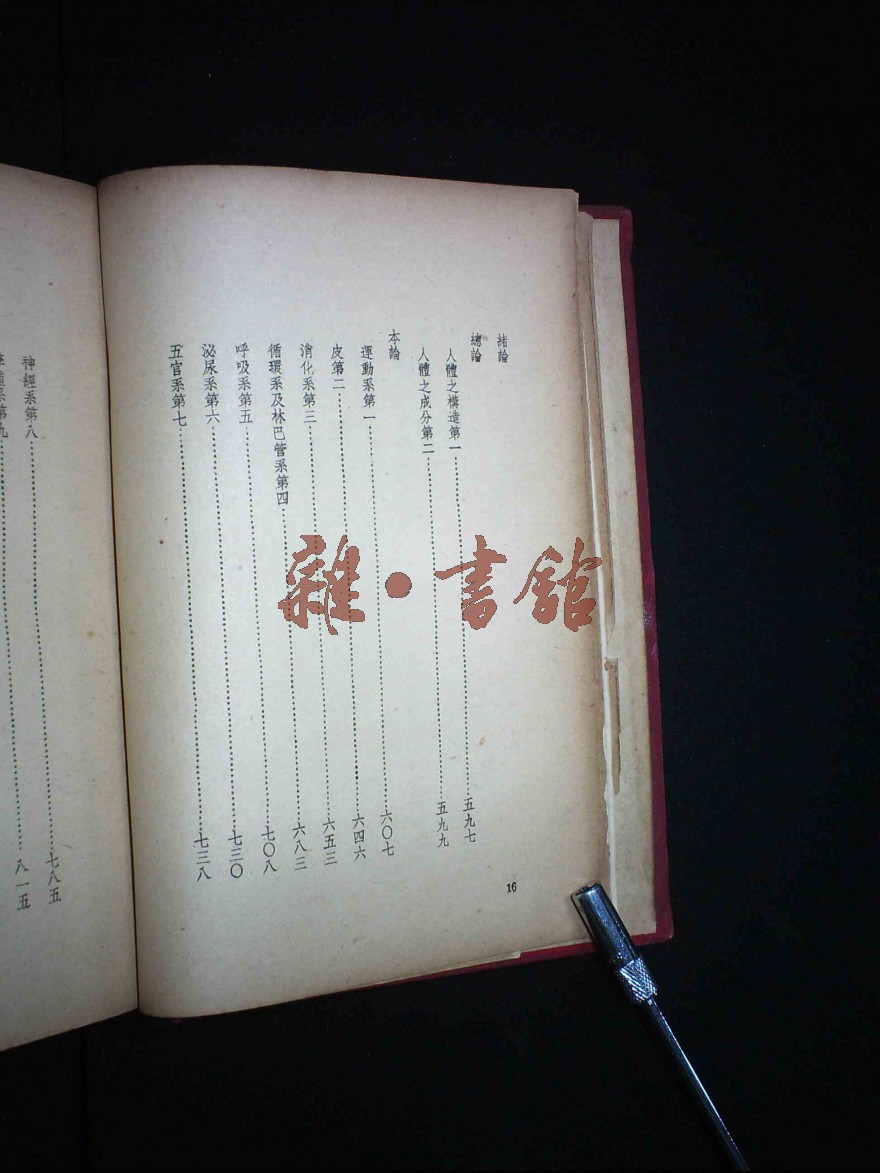 緒論
總論
人體之構造第一……五九七
人體之成分第二……五九九
本論
運動系第一……六〇七
皮第二……六四六
消化系第三……六五三
循環系及林巴管系第四……六八三
呼吸系第五……七〇八
泌尿系第六……七三〇
五官系第七……七三八
16
神經系第八……七八五
系第九……八一五
雜·書館